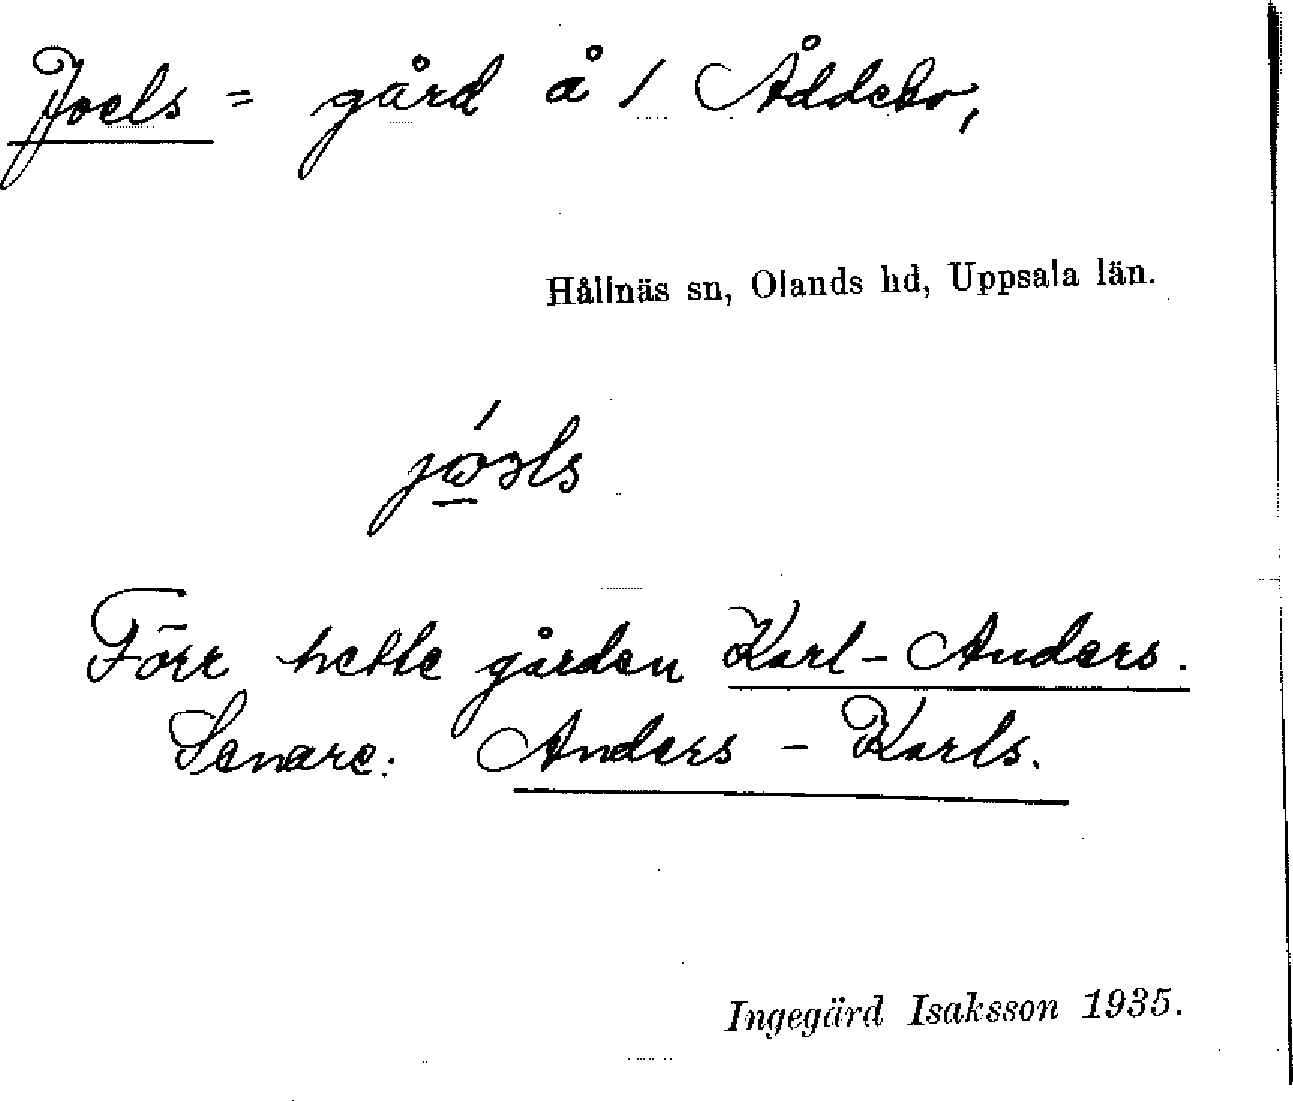 Joels = gård å / Åddebo,
Hållnäs sn, Olands hd, Uppsala län.
jóəls
Förr hette gården Karl-Anders.
Senare: Anders - Karls.
Ingegärd Isaksson 1935.